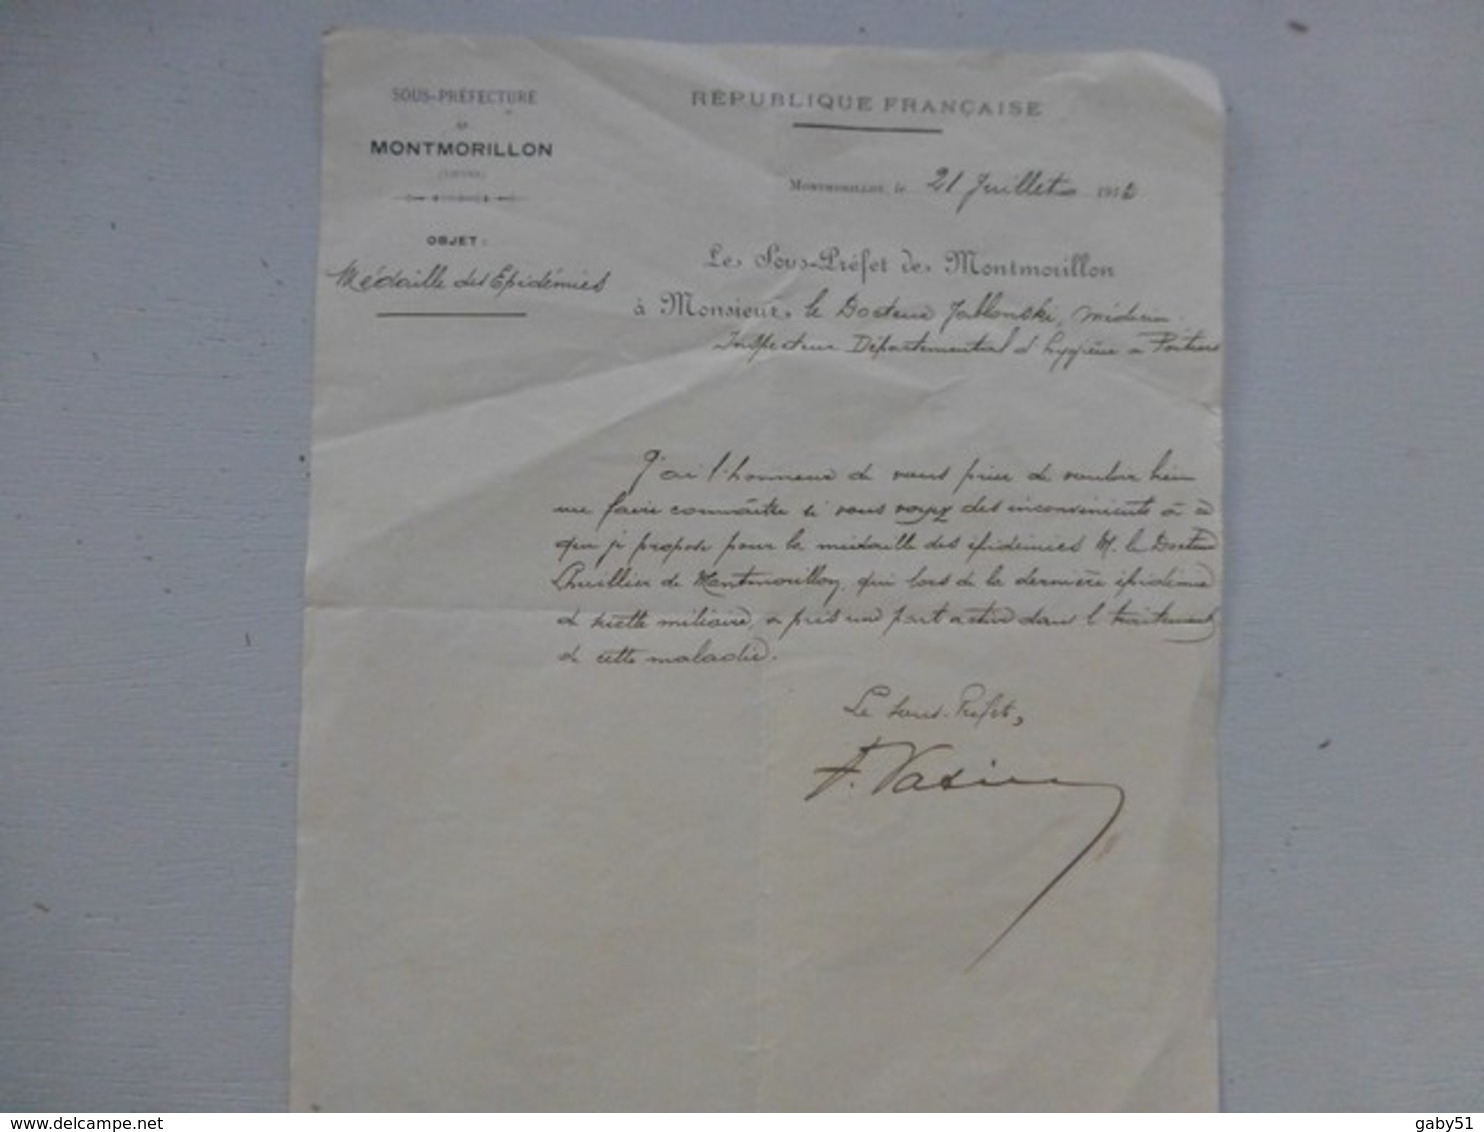 SOUS-PRÉFECTURE
DE
MONTMORILLON
(VIENNE)
OBJET :
Médaille des Epidémies
RÉPUBLIQUE FRANÇAISE
MONTMORILLON, le 21 Juillet 1912
Le Sous-Préfet de Montmorillon
à Monsieur le Docteur Jablonski, Médecin
Inspecteur Départemental d'hygiène à Poitiers
J'ai l'honneur de vous prier de vouloir bien
me faire connaître si vous voyez des inconvénients à ce
que je propose pour la médaille des épidémies M. le Docteur
de Montmorillon, qui lors de la dernière épidémie
de suette miliaire, a pris une part active dans le traitement
de cette maladie.
Le Sous-Préfet,
delcampe.net
gaby51